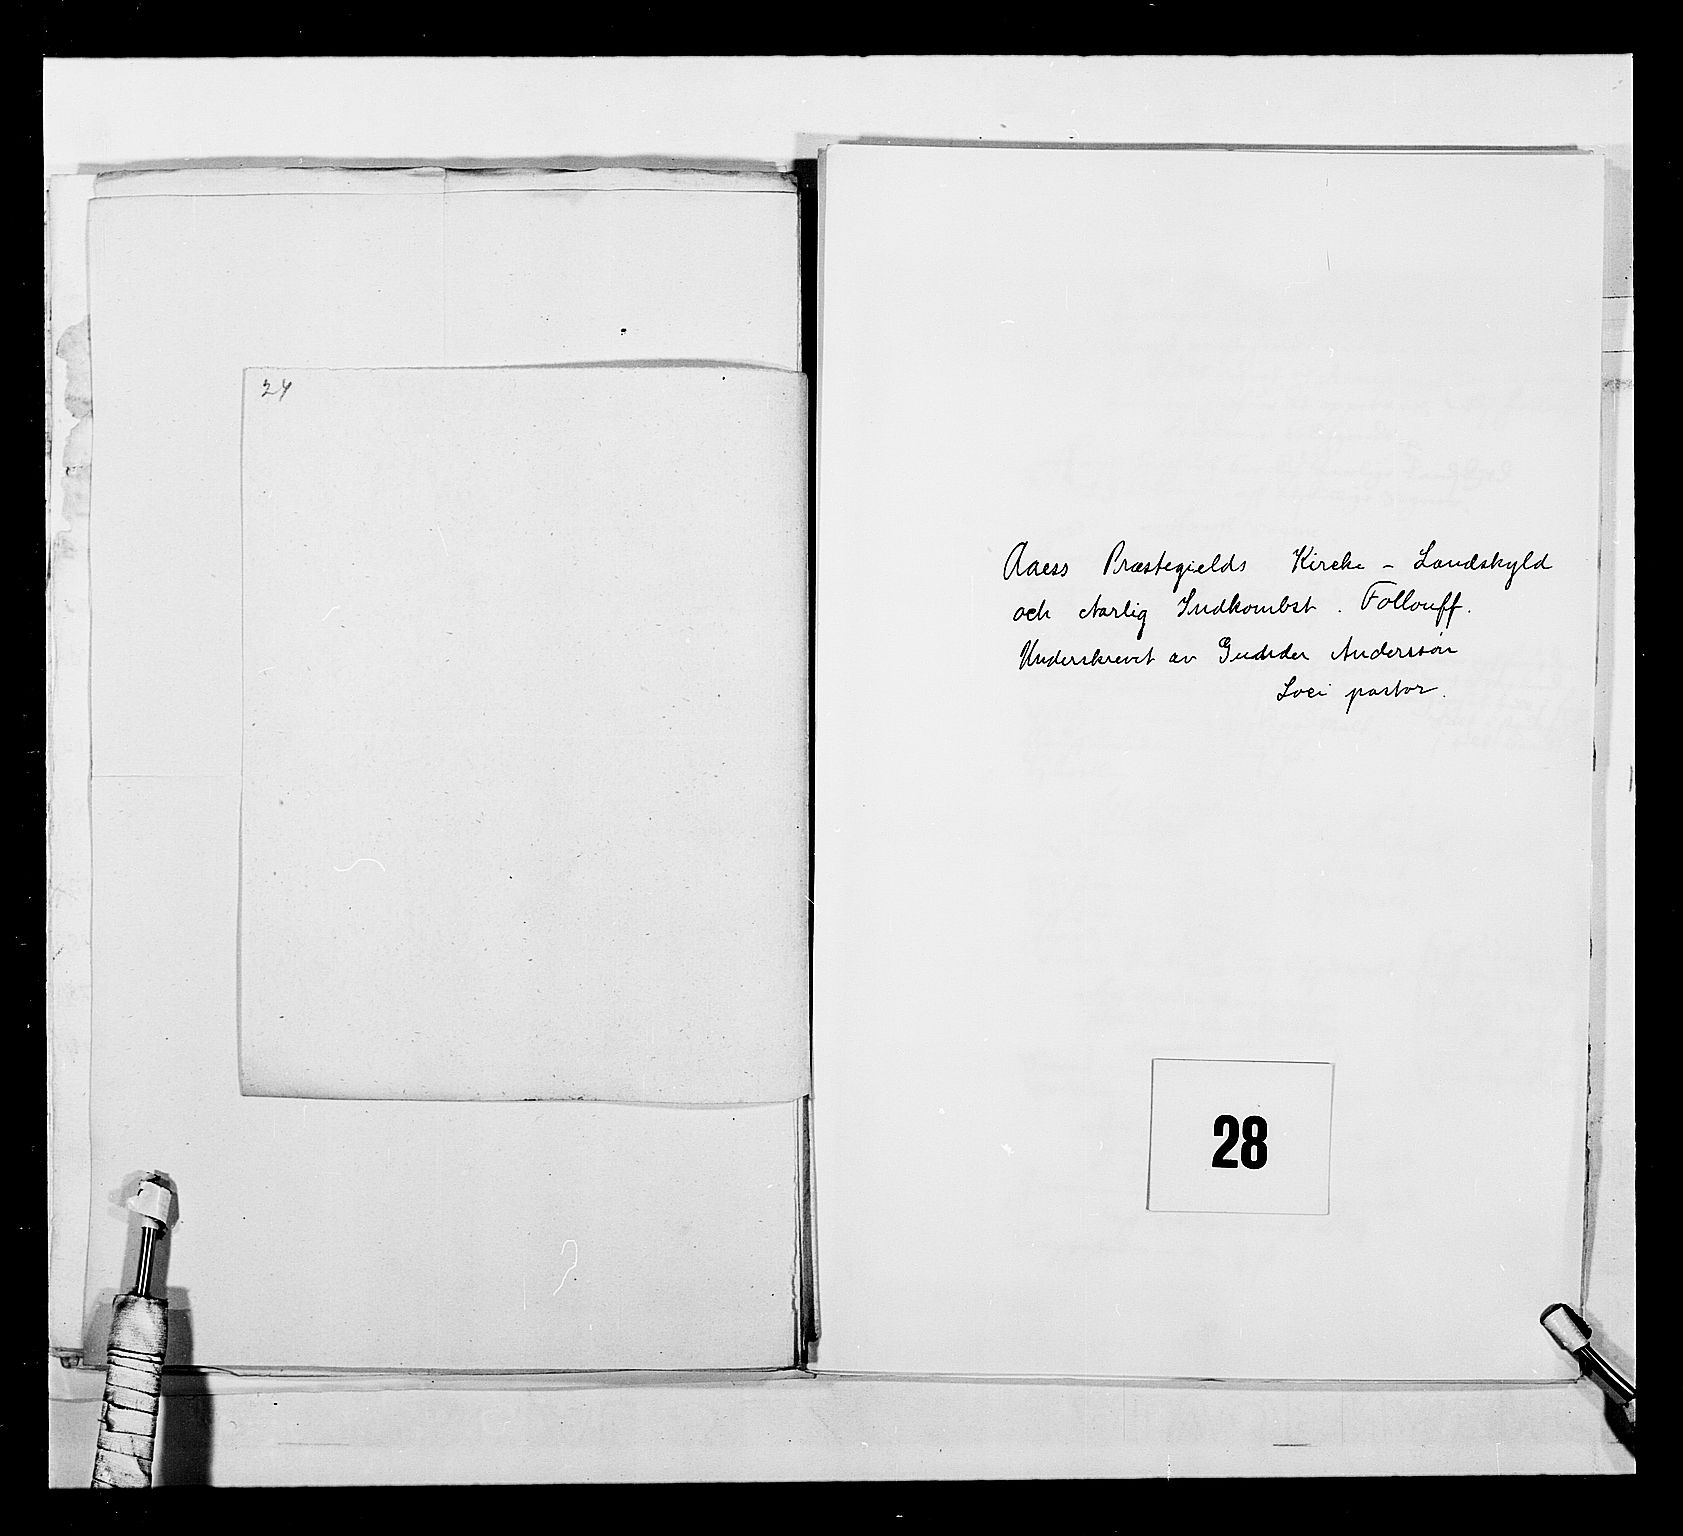 24
Aaess Præstegields Kircke - Landskyld
och Aarlig Indkombst. Follouff.
Underskrevet av Gudder Anderssøn
Loci pastor.
28